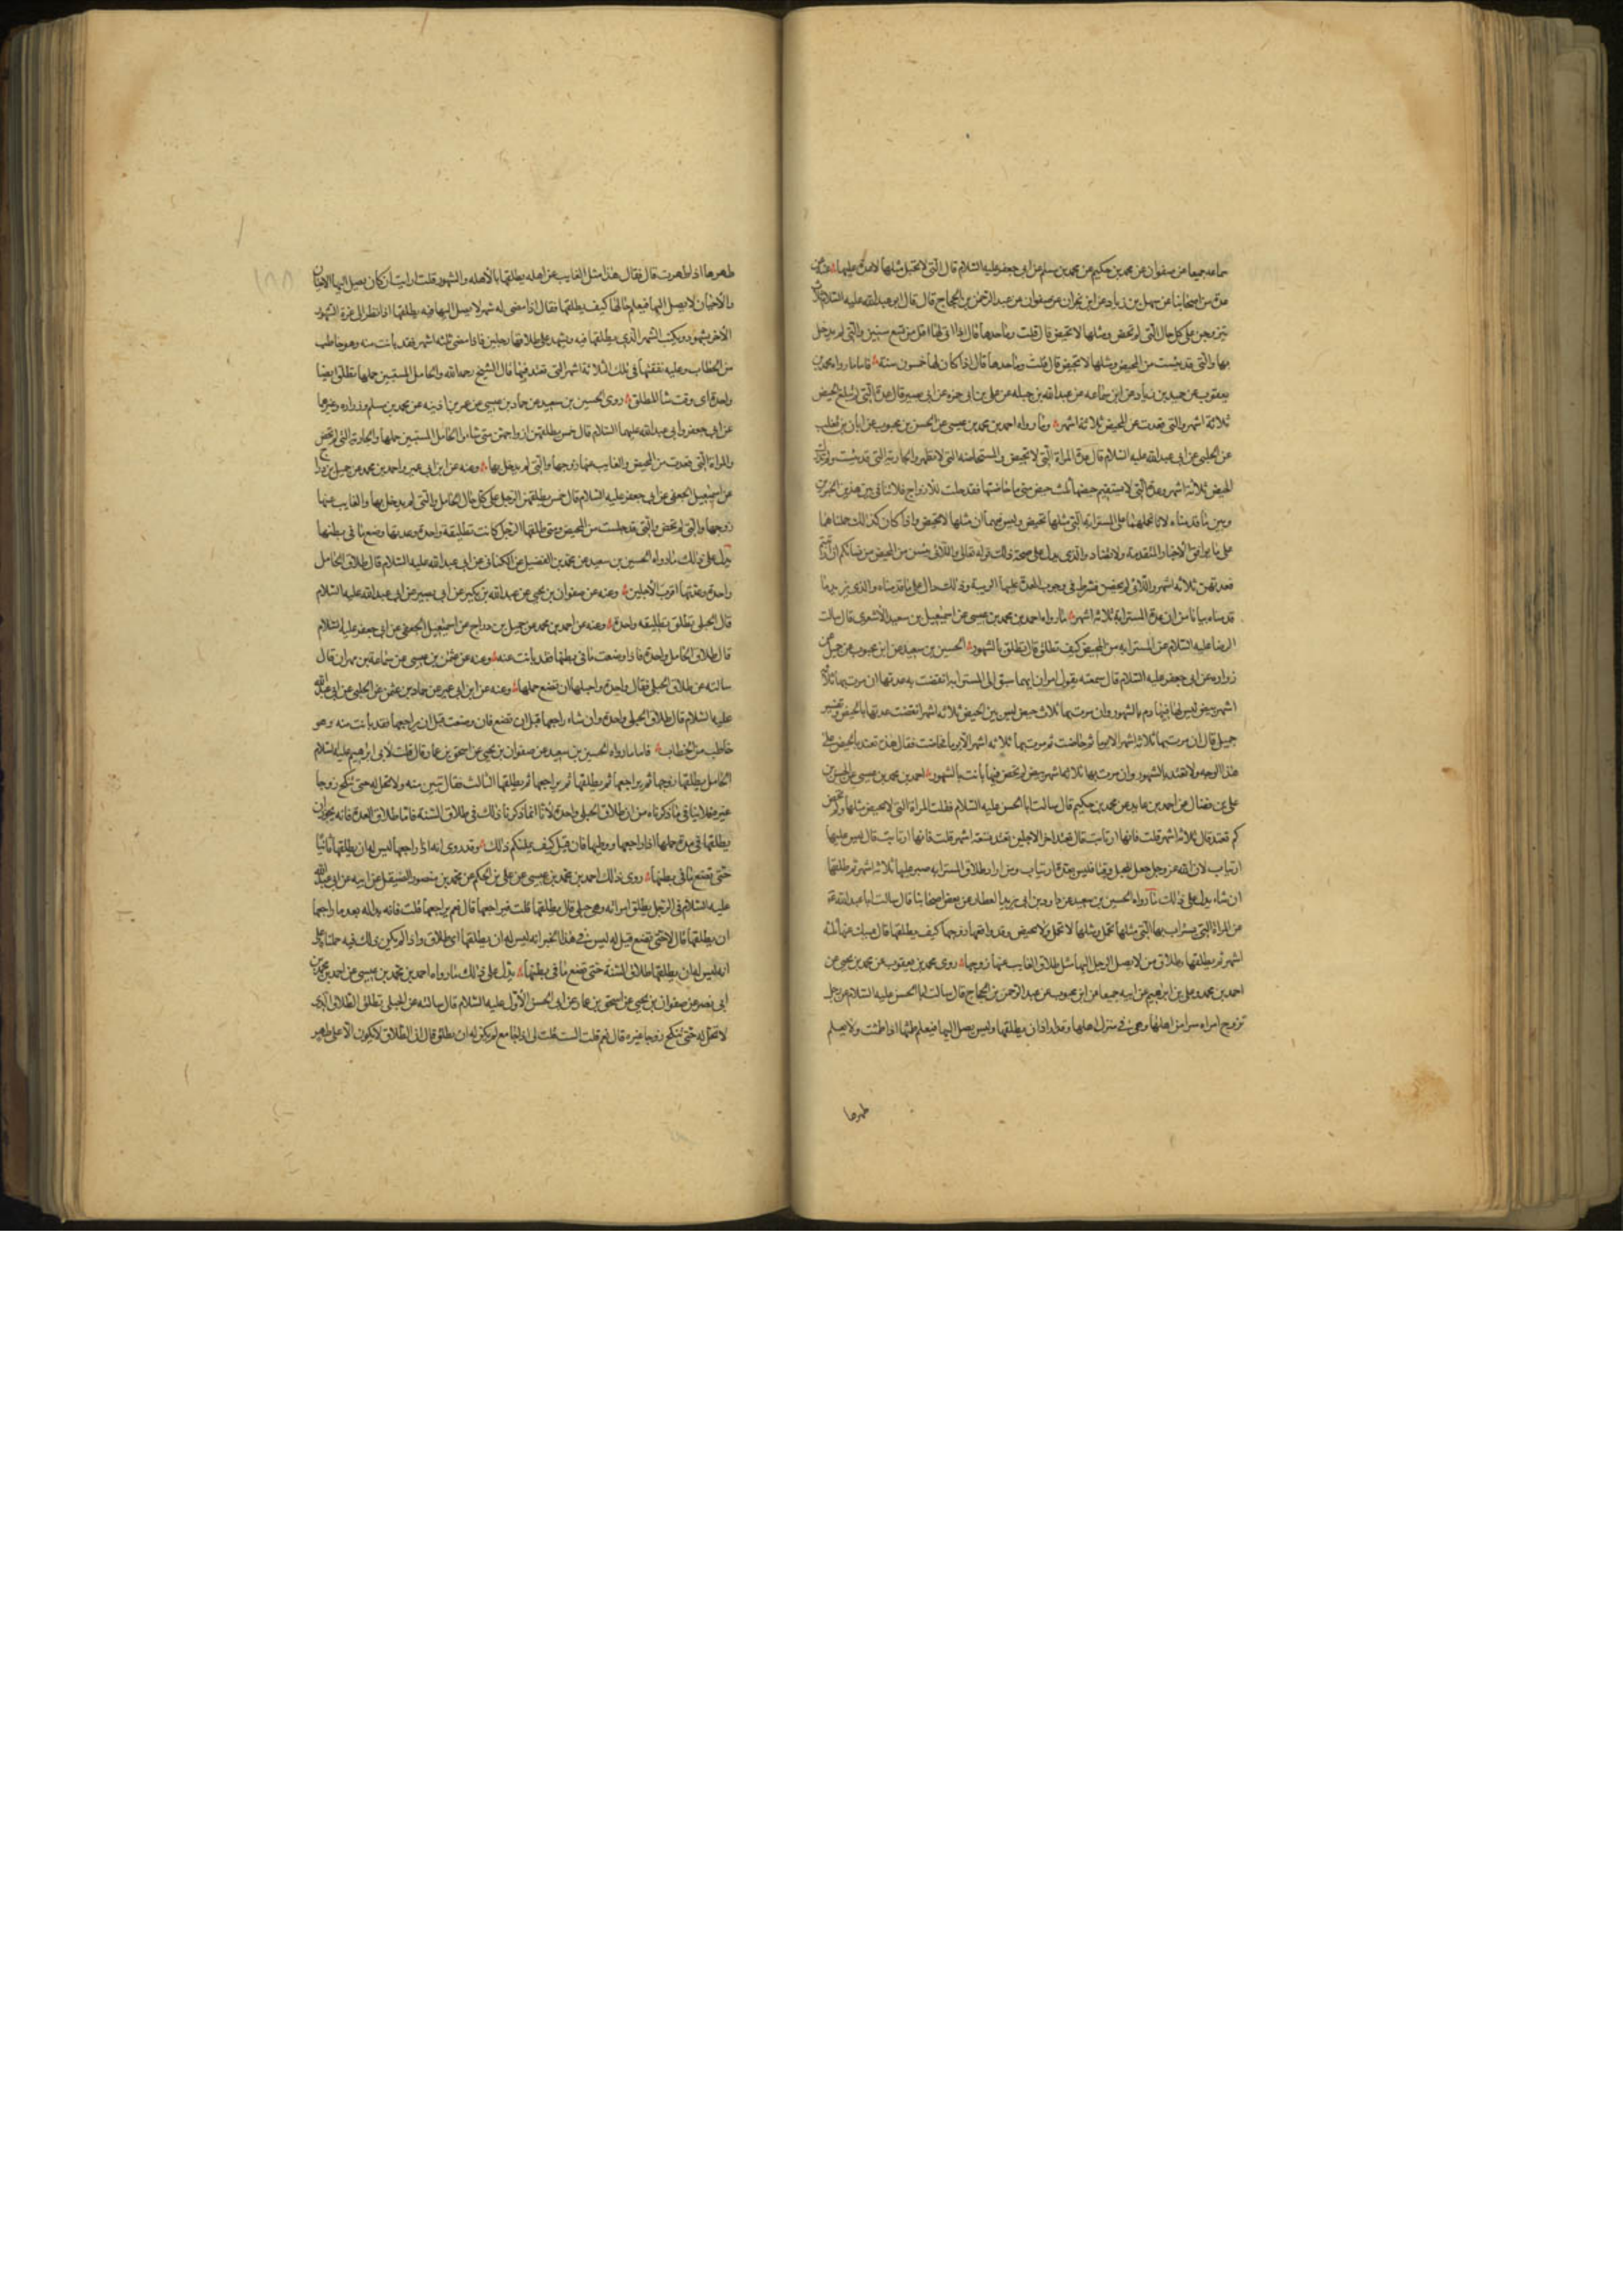 سماعه جميعا عن صفوان عن محمد بن حكيم عن محمد بن مسلم عن ابي جعفر عليه السلام قال التي لا تحبل مثلها لا عدة عليها
عدة من اصحابنا عن سهل بن زياد عن ابن نجران عن صفوان عن عبد الرحمن بن الحجاج قال قال ابو عبد الله عليه السلام ثلاث
يتزوجن على كل حال التي لم تحض ومثلها لا تحيض قال قلت وما حدها قال اذا اتى لها اقل من تسع سنين والتي لم يدخل
بها والتي قد يئست من المحيض ومثلها لا تحيض قال قلت وما حدها قال اذا كان لها خمسون سنة فاما ما رواه محمد بن
يعقوب عن حميد بن زياد عن ابن سماعه عن عبد الله بن جبله عن علي بن ابي حمزه عن ابي بصير قال عدة التي لم تبلغ المحيض
ثلاثة اشهر والتي قعدت عن المحيض ثلاثة اشهر وما رواه احمد بن محمد بن عيسى عن الحسن بن محبوب عن ابان بن تغلب
عن الحلبي عن ابي عبد الله عليه السلام قال عدة المراة التي لا تحيض والمستحاضه التي لا تطهر والجارية التي قد يئست ولم تدرك
المحيض ثلاثة اشهر وعدة التي لا يستقيم حيضها ثلث حيض متى ما حاضتها فقد حلت للازواج فلا تنافي بين هذين الخبرين
وبين ما قدمناه لانا نحملهما على المسترابة التي مثلها تحيض وليس فيهما ان مثلها لا تحيض واذا كان كذلك حملناهما
على ما يوافق الاخبار المتقدمة ولا تضاد والذي يدل على صحة ذلك قوله تعالى واللائي يئسن من المحيض من نسائكم ان ارتبتم
فعدتهن ثلاثه اشهر واللائي لم يحضن فشرط في وجوب العدة عليها الريبة وذلك دال على ما قدمناه والذي يزيد ما
قدمناه بيانا من ان عدة المسترابة ثلاثه اشهر ما رواه احمد بن محمد بن عيسى عن اسمعيل بن سعيد الاشعري قال سالت
الرضا عليه السلام عن المسترابه من المحيض كيف تطلق قال تطلق بالشهور الحسين بن سعيد عن ابن محبوب عن جميل عن
زراره عن ابي جعفر عليه السلام قال سمعته يقول امران ايهما سبق الى المسترابه انقضت به عدتها ان مرت بها ثلاثة
اشهر بيض ليس لها فيها دم بالشهور وان مرت بها ثلاث حيض ليس بين الحيض ثلاثه اشهر انقضت عدتها بالحيض وتفسير
جميل قال ان مرت بها ثلاثه اشهر الا يوما ثم حاضت ثم مرت بها ثلاثه اشهر الا يوما فحاضت فقال هذه تعتد بالحيض على
هذا الوجه ولا تعتد بالشهور وان مرت بها ثلاثة اشهر بيض لم تحض فيها بانت بالشهور احمد بن محمد بن عيسى عن الحسن بن
علي بن فضال عن احمد بن عايد عن محمد بن حكيم قال سالت ابا الحسن عليه السلام فقلت المراة التي لا تحيض مثلها ولم تحض
كم تعتد قال ثلاثه اشهر قلت فانها ارتابت قال تعتد اخر الاجلين تعتد تسعة اشهر قلت فانها ارتابت قال ليس عليها
ارتياب لان الله عز وجل جعل للحبل وقتا فليس بعده ارتياب ومن اراد طلاق المسترابه صبر عليها ثلاثة اشهر ثم طلقها
ان شاء يدل على ذلك ما رواه الحسين بن سعيد عن داود بن ابي يزيد العطار عن بعض اصحابنا قال سالت ابا عبد الله عه
عن المراة التي يستراب بها التي مثلها تحمل ومثلها لا تحمل ولا تحيض وقد واقعها زوجها كيف يطلقها قال يمسك عنها ثلثه
اشهر ثم يطلقها وطلاق من لا يصل الرجل اليها مثل طلاق الغايب عنها زوجها روى محمد بن يعقوب عن محمد بن يحيى عن
احمد بن محمد وعلي بن ابراهيم عن ابيه جميعا عن ابن محبوب عن عبد الرحمن بن الحجاج قال سالت ابا الحسن عليه السلام عن رجل
تزوج امراه سرا من اهلها وهي في منزل اهلها وقد اراد ان يطلقها وليس يصل اليها فيعلم طمثها اذا طمثت ولا يعلم
طهرها
طهرها اذا طهرت قال فقال هذا مثل الغايب عن اهله يطلقها بالاهله والشهور قلت ارايت ان كان يصل اليها الاحيان
والاحيان لا يصل اليها فيعلم حالها كيف يطلقها فقال اذا مضى له شهر لا يصل اليها فيه يطلقها اذا نظر الى غرة الشهر
الاخر بشهود ويكتب الشهر الذي يطلقها فيه ويشهد على طلاقها رجلين فاذا مضى ثلثه اشهر فقد بانت منه وهو خاطب
من الخطاب وعليه نفقتها في تلك الثلاثة اشهر التي تعتد فيها قال الشيخ رحمه الله والحامل المستبين حملها تطلق ايضا
واحدة اى وقت شا المطلق روى الحسين بن سعيد عن حماد بن عيسى عن عمر بن اذينه عن محمد بن مسلم وزراره وغيرهما
عن ابي جعفر وابي عبد الله عليهما السلام قال خمس يطلقهن ازواجهن متى شاءوا الحامل المستبين حملها والجارية التي لم تحض
والمراة التي قعدت من المحيض والغايب عنها زوجها والتي لم يدخل بها وعنه عن ابن ابي عمير واحمد بن محمد عن جميل بن دراج
عن اسمعيل الجعفي عن ابي جعفر عليه السلام قال خمس يطلقهن الرجل على كل حال الحامل والتي لم يدخل بها والغايب عنها
زوجها والتي لم تحض والتي قد جلست من المحيض ومتى طلقها الرجل كانت تطليقة واحدة وعدتها وضع ما في بطنها
يدل على ذلك ما رواه الحسين بن سعيد عن محمد بن الفضيل عن الكناني عن ابي عبد الله عليه السلام قال طلاق الحامل
واحدة وعدتها اقرب الاجلين وعنه عن صفوان بن يحيى عن عبد الله بن بكير عن ابي بصير عن ابي عبد الله عليه السلام
قال الحبلى تطلق تطليقه واحدة وعنه عن احمد بن محمد عن جميل بن دراج عن اسمعيل الجعفي عن ابي جعفر عليه السلام
قال طلاق الحامل واحدة فاذا وضعت ما في بطنها فقد بانت عنه وعنه عن عثمن بن عيسى عن سماعة بن مهران قال
سالته عن طلاق الحبلى فقال واحدة واجلها ان تضع حملها وعنه عن ابن ابي عمير عن حماد بن عثمن عن الحلبي عن ابي عبد الله
عليه السلام قال طلاق الحبلى واحدة وان شاء راجعها قبل ان تضع فان وضعت قبل ان يراجعها فقد بانت منه وهو
خاطب من الخطاب فاما ما رواه الحسين بن سعيد عن صفوان بن يحيى عن اسحق بن عمار قال قلت لابي ابرهيم عليه السلام
الحامل يطلقها زوجها ثم يراجعها ثم يطلقها ثم يراجعها ثم يطلقها الثالث فقال تبين منه ولا تحل له حتى تنكح زوجا
غيره فلا ينافي ما ذكرناه من ان طلاق الحبلى واحدة لانا انما ذكرنا ذلك في طلاق السنة فاما طلاق العدة فانه يجوز ان
يطلقها في مدة حملها اذا راجعها ووطيها فان قيل كيف يمكنكم ذلك وقد روى انه اذا راجعها ليس له ان يطلقها ثانيا
حتى تضع ما في بطنها روى ذلك احمد بن محمد بن عيسى عن علي بن الحكم عن محمد بن منصور الصيقل عن ابيه عن ابي عبد الله
عليه السلام في الرجل يطلق امراته وهي حبلى قال يطلقها قلت فيراجعها قال نعم يراجعها قلت فانه بدا له بعد ما راجعها
ان يطلقها قال لا حتى تضع قيل له ليس في هذا الخبر انه ليس له ان يطلقها اى طلاق واذا لم يكن ذلك فيه حملناه على
انه ليس له ان يطلقها طلاق السنة حتى تضع ما في بطنها يدل على ذلك ما رواه احمد بن محمد بن عيسى عن احمد بن محمد بن
ابي نصر عن صفوان بن يحيى عن اسحق بن عمار عن ابي الحسن الاول عليه السلام قال سالته عن الحبلى تطلق الطلاق الذي
لا تحل له حتى تنكح زوجا غيره قال نعم قلت الست قلت لي اذا جامع لم يكن له ان يطلق قال ان الطلاق لا يكون الا على طهر